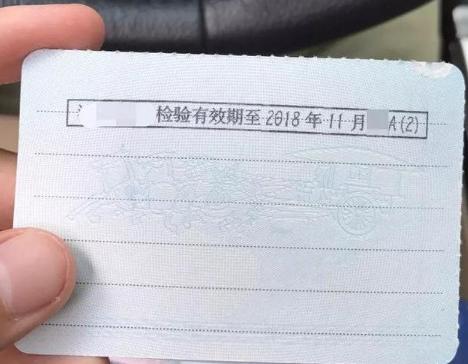 检验有效期至2018年11月 A(2)